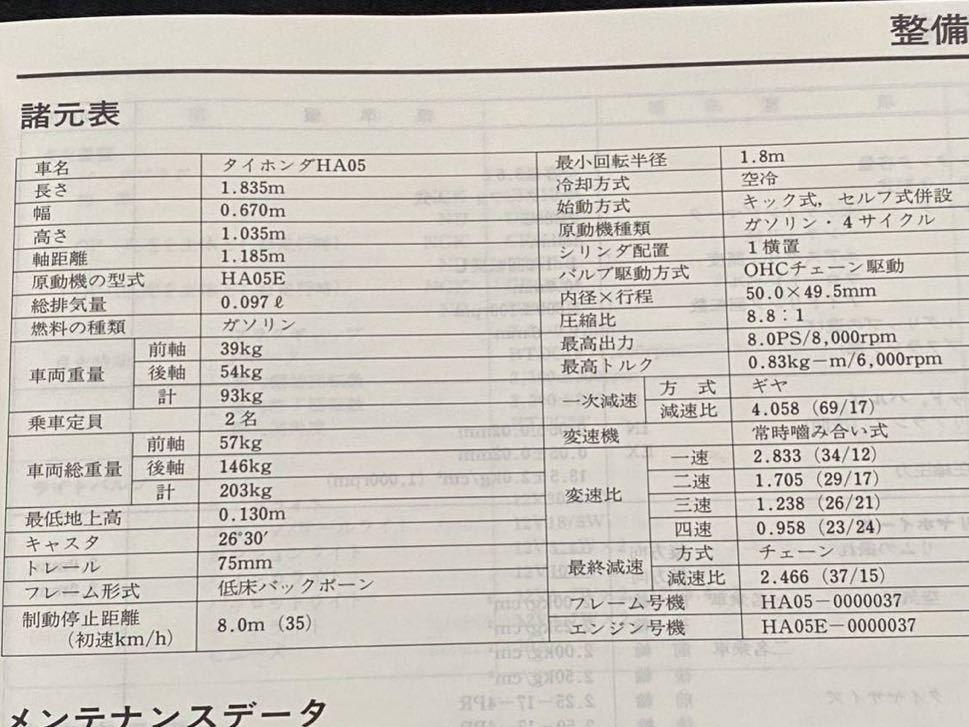 整備
諸元表
車名 タイホンダHA05
長さ 1.835m
幅 0.670m
高さ 1.035m
軸距離 1.185m
原動機の型式 HA05E
総排気量 0.097ℓ
燃料の種類 ガソリン
車両重量 前軸 39kg
後軸 54kg
計 93kg
乗車定員 2名
車両総重量 前軸 57kg
後軸 146kg
計 203kg
最低地上高 0.130m
キャスタ 26°30′
トレール 75mm
フレーム形式 低床バックボーン
制動停止距離
(初速km/h) 8.0m (35)
最小回転半径 1.8m
冷却方式 空冷
始動方式 キック式, セルフ式併設
原動機種類 ガソリン・4サイクル
シリンダ配置 1横置
バルブ駆動方式 OHCチェーン駆動
内径×行程 50.0×49.5mm
圧縮比 8.8:1
最高出力 8.0PS/8,000rpm
最高トルク 0.83kg-m/6,000rpm
一次減速 方式 ギヤ
減速比 4.058 (69/17)
変速機 常時嚙み合い式
変速比 一速 2.833 (34/12)
二速 1.705 (29/17)
三速 1.238 (26/21)
四速 0.958 (23/24)
最終減速 方式 チェーン
減速比 2.466 (37/15)
フレーム号機 HA05-0000037
エンジン号機 HA05E-0000037
メンテナンスデータ